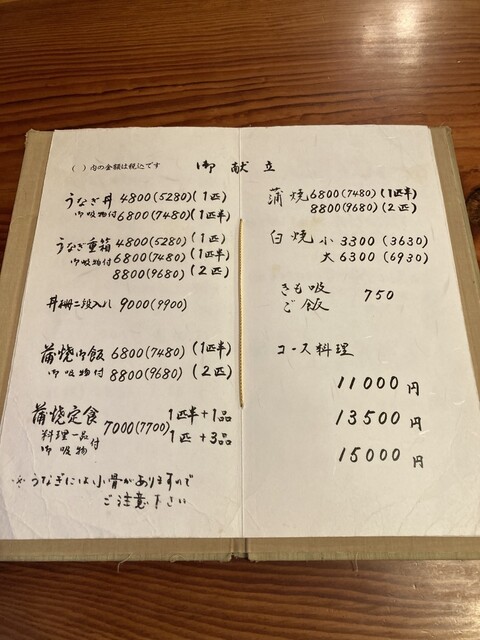 ( )内の金額は税込です
御献立
うなぎ丼 4800(5280)(1匹)
御吸物付 6800(7480)(1匹半)
うなぎ重箱 4800(5280)(1匹)
御吸物付 6800(7480)(1匹半)
8800(9680)(2匹)
丼 二段入り 9000(9900)
蒲焼御飯 6800(7480)(1匹半)
御吸物付 8800(9680)(2匹)
蒲焼定食 7000(7700) 1匹半+1品
料理一品付 1匹+3品
御吸物
※うなぎには小骨がありますので
ご注意下さい
蒲焼 6800(7480)(1匹半)
8800(9680)(2匹)
白焼 小 3300(3630)
大 6300(6930)
きも吸 750
ご飯
コース料理
11000円
13500円
15000円